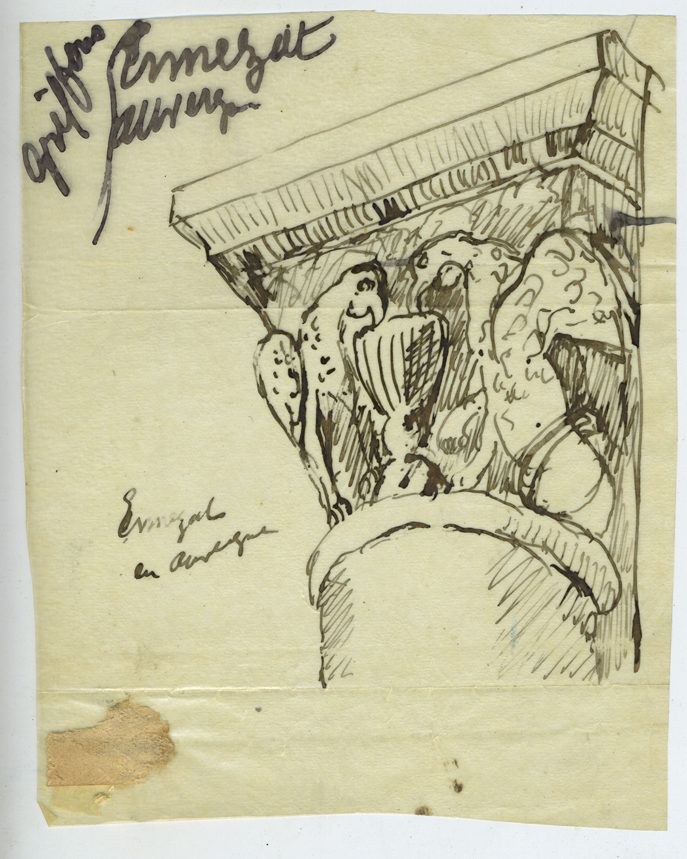 griffons
Ermezat
auvergne
Ermezat
en auvergne